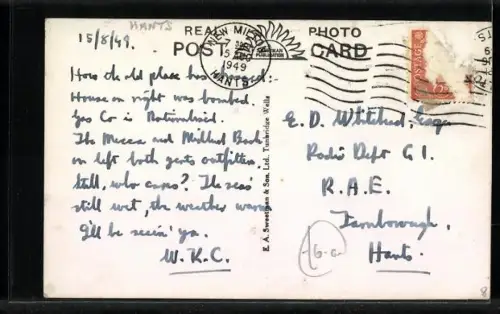 HANTS
15/8/49.
REAL PHOTO
POST CARD
1949
HANTS
POSTAGE
How the old place has changed:-
House on right was bombed.
Gas Co is Nationalised.
The Mecca and Midland Bank
on left both gents outfitters.
Still, who cares? The sea's
still wet, the weather warm
I'll be seein' ya.
W.K.C.
E. A. Sweetman & Son, Ltd., Tunbridge Wells
E. D. Whitehead, Esq.
Radio Dept G1.
R.A.E.
Farnborough,
Hants.